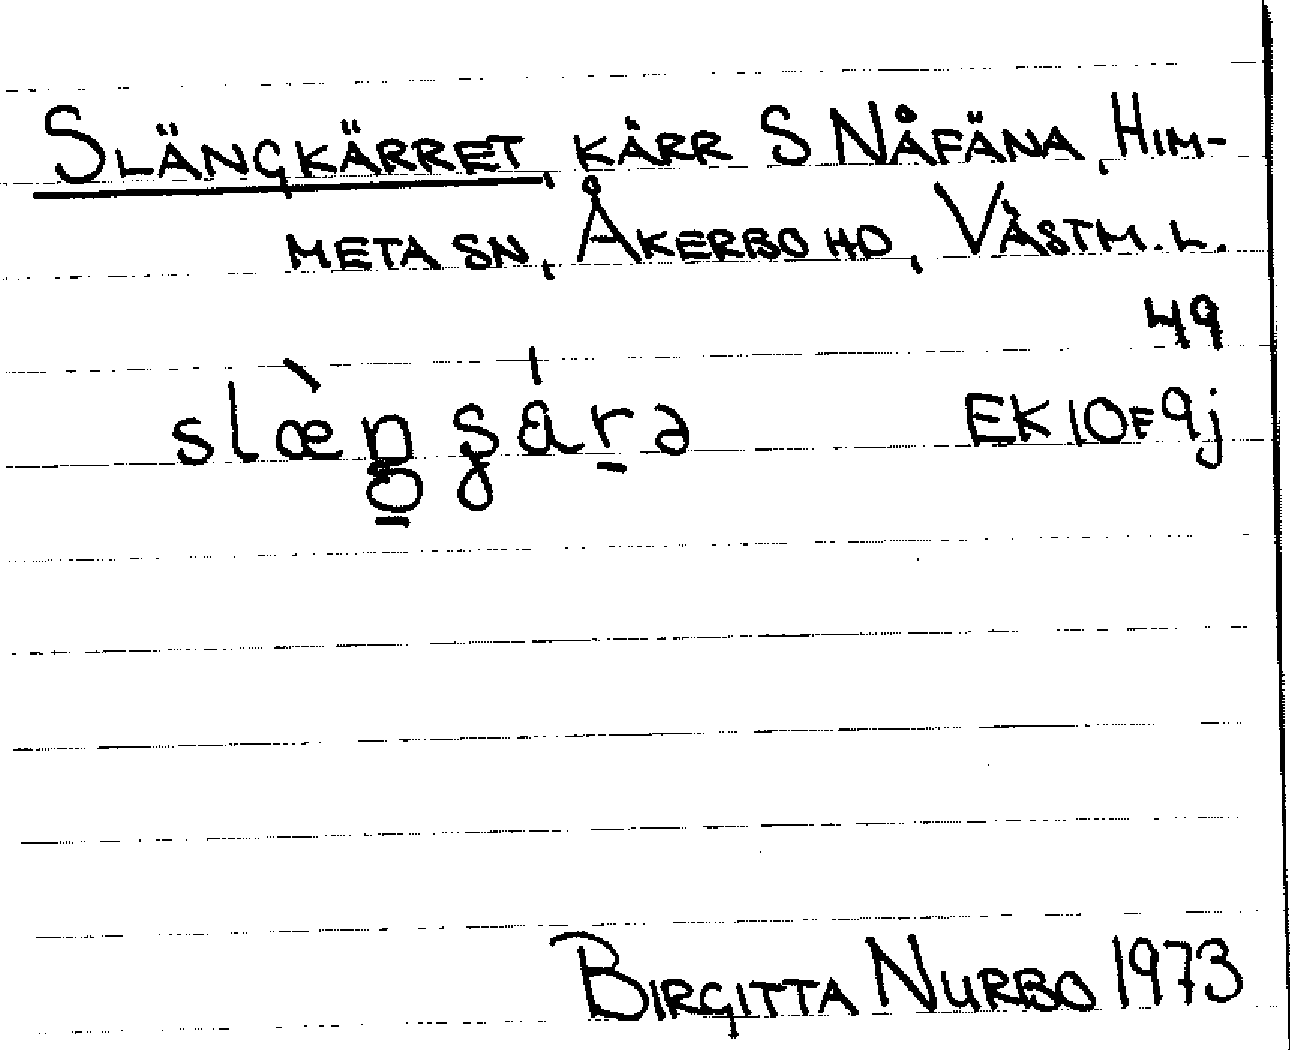 SLÄNGKÄRRET, KÄRR S NÅFÄNA, HIM-
META SN, ÅKERBO HD, VÄSTM. L.
49
EK 10F9j
BIRGITTA NURBO 1973